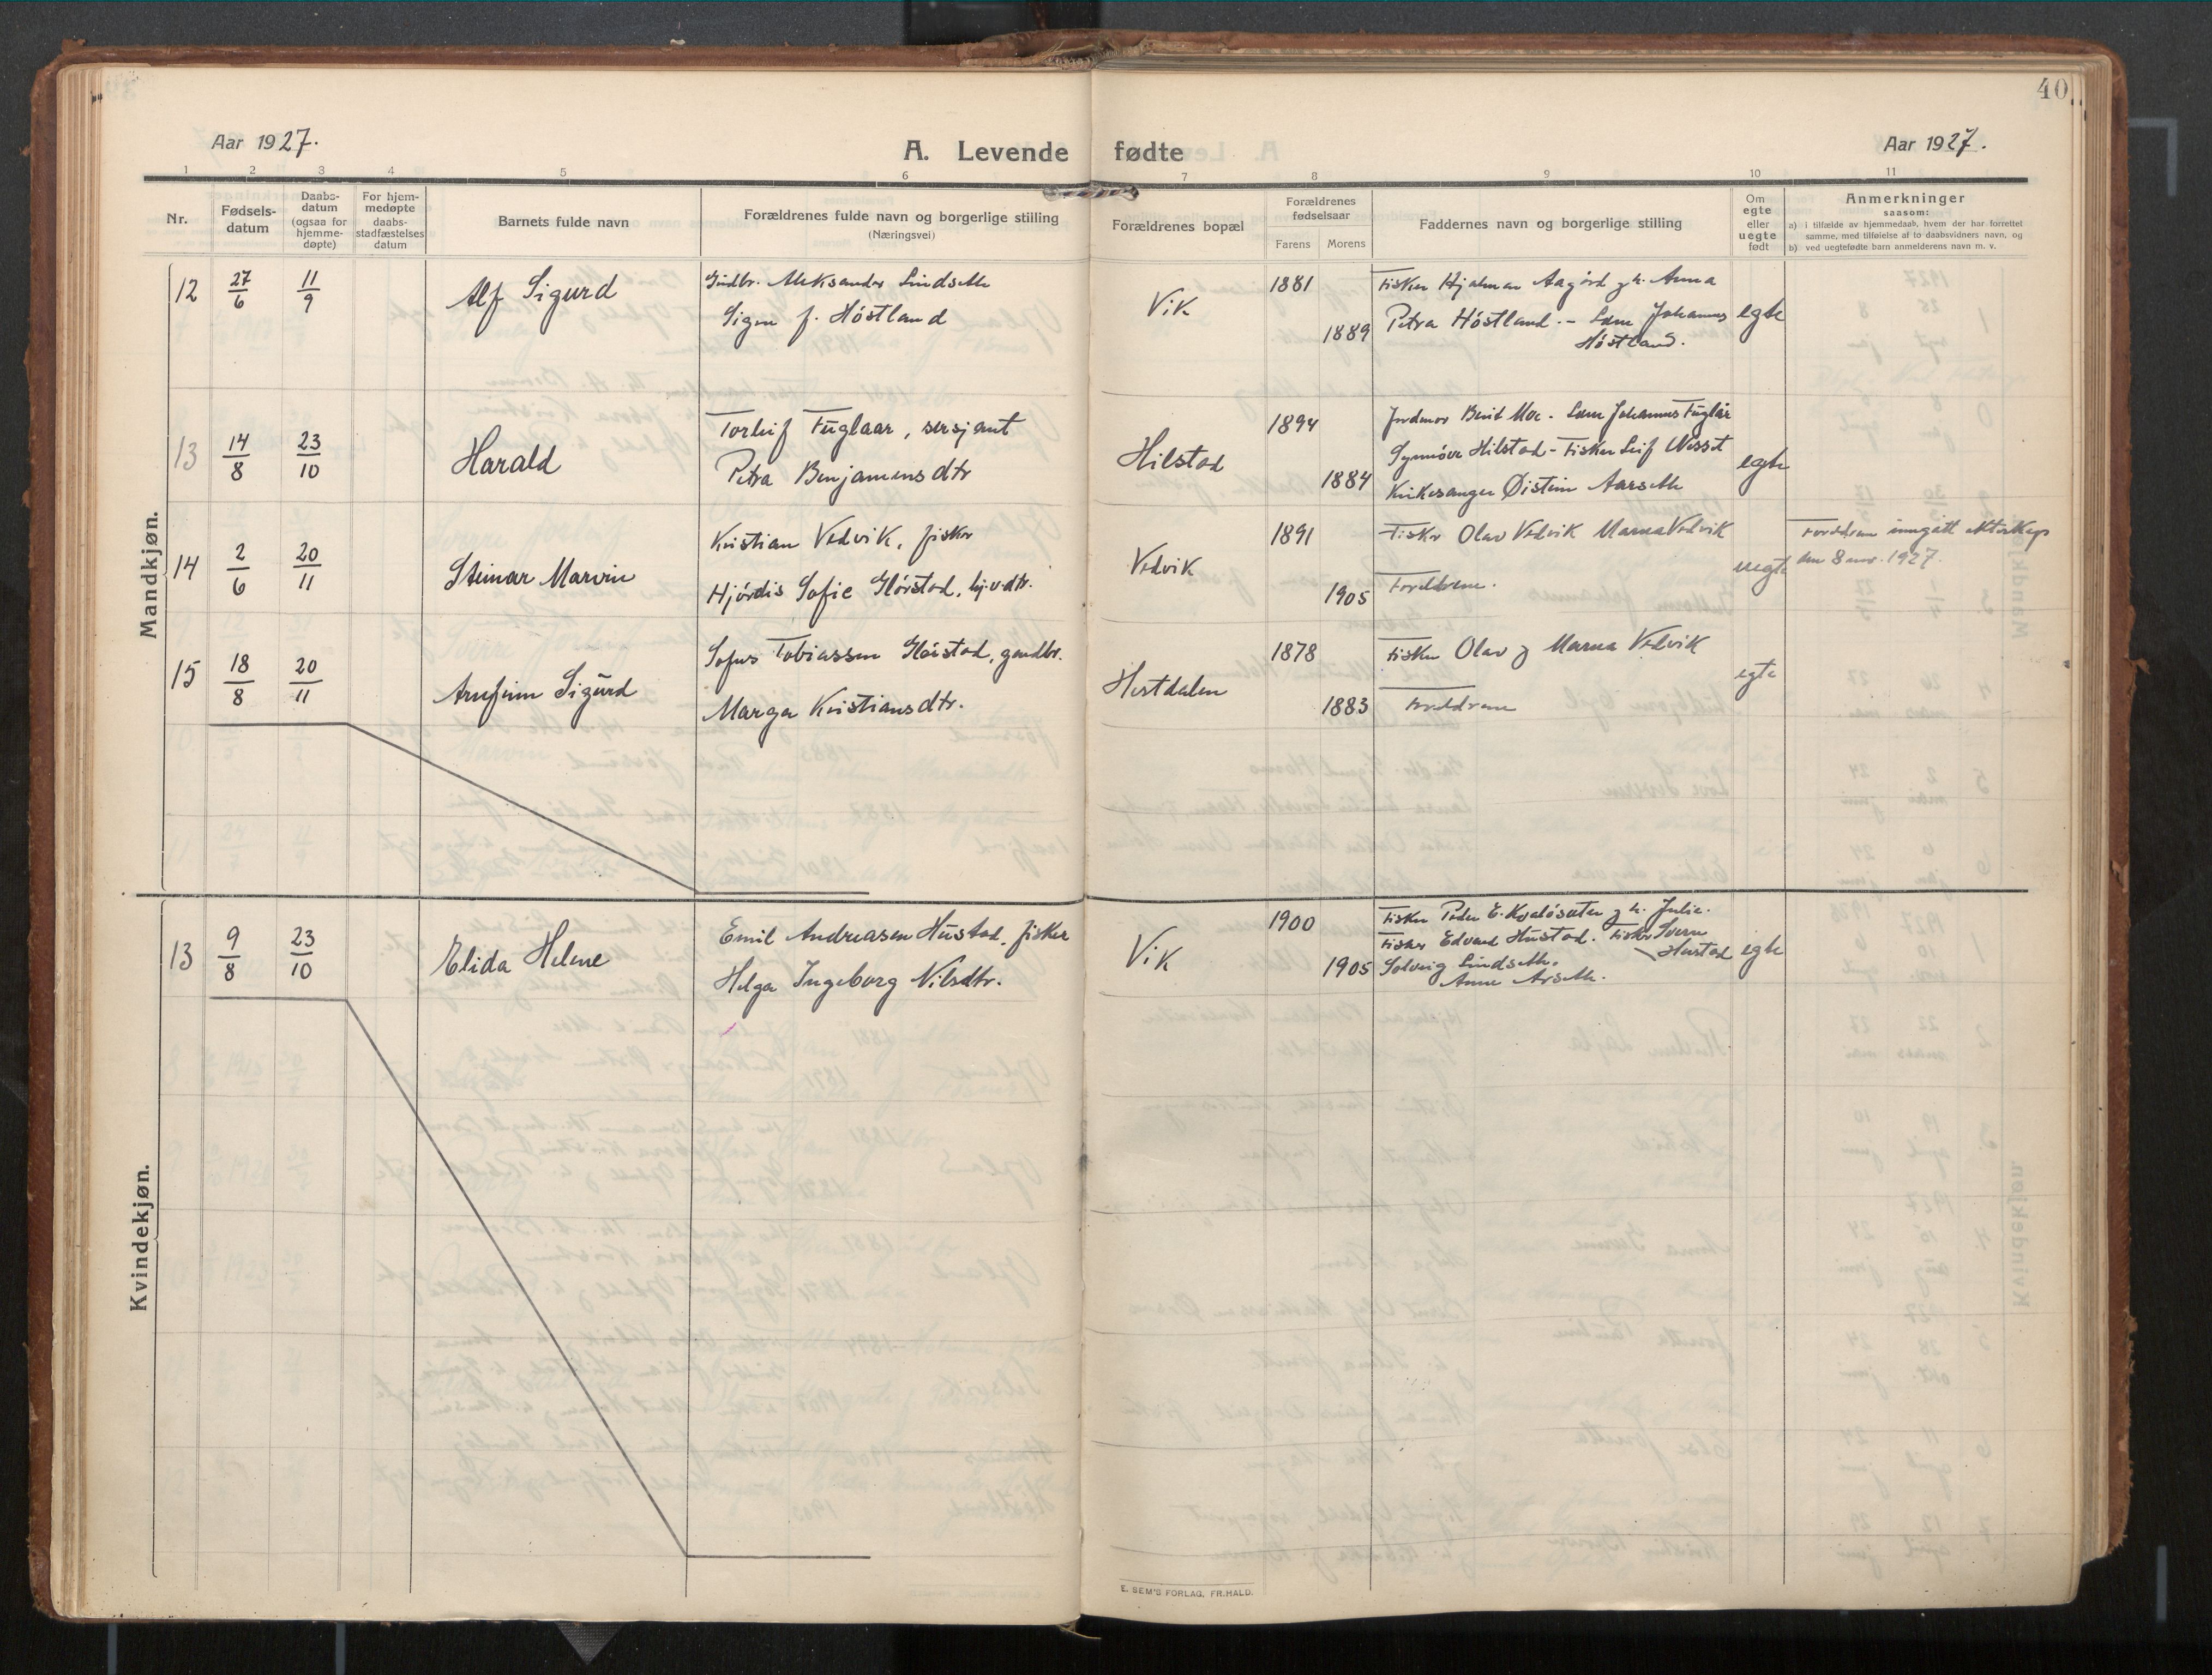 40
Aar 1927.
A. Levende fødte
Aar 1927.
1 2 3 4 5 6 7 8 9 10 11
Nr.
Fødsels-
datum
Daabs-
datum
(ogsaa for
hjemme-
døpte)
For hjem-
medøpte
daabs-
stadfæstelses
datum
Barnets fulde navn
Forældrenes fulde navn og borgerlige stilling
(Næringsvei)
Forældrenes bopæl
Forældrenes
fødselsaar
Farens Morens
Faddernes navn og borgerlige stilling
Om
egte
eller
uegte
født
Anmerkninger
saasom:
a) i tilfælde av hjemmedaab, hvem der har forrettet
samme, med tilføielse af to daabsvidners navn, og
b) ved uegtefødte barn anmelderens navn m. v.
Mandkjøn.
12 27/6 11/9 Alf Sigurd
Gårdbr. Aleksander Lindseth
Signe f. Høstland
Vik
1881
1889
Fisker Hjalmar Aagård og h. Anna
Petra Høstland. - Johannes
Høstland.
egte
13 14/8 23/10 Harald
Torleif Fuglaar, sersjant
Petra Benjaminsdtr
Hilstad
1894
1884
Jordmor Berit Moe. Johannes Fuglår
Synnöve Hilstad - Fisker Leif
Kirkesanger Øistein Aarseth
egte
14 2/6 20/11 Steinar Marvin
Kristian Vedvik, fisker
Hjördis Sofie Glørstad, hj.v.dtr.
Vedvik
1891
1905
Fisker Olav Vedvik Marna Vedvik
Foreldrene.
uegte
Foreldrene inngått ektskap
den 8 nov. 1927.
15 18/8 20/11 Arnfinn Sigurd
Sofus Tobiassen Glørstad, gårdbr.
Marga Kristiansdtr.
Hestdalen
1878
1883
Fisker Olav og Marna Vedvik
Foreldrene
egte
Kvindekjøn.
13 9/8 23/10 Elida Helene
Emil Andreasen Hustad, fisker
Helga Ingeborg Nilsdtr.
Vik
1900
1905
Fisker Peder E. Kvaløsæter og h. Julie.
Fisker Edvard Hustad. Fisker Sverre
Hustad
Solveig Lindseth.
Anne Arseth.
egte
E. SEM'S FORLAG, FR.HALD.